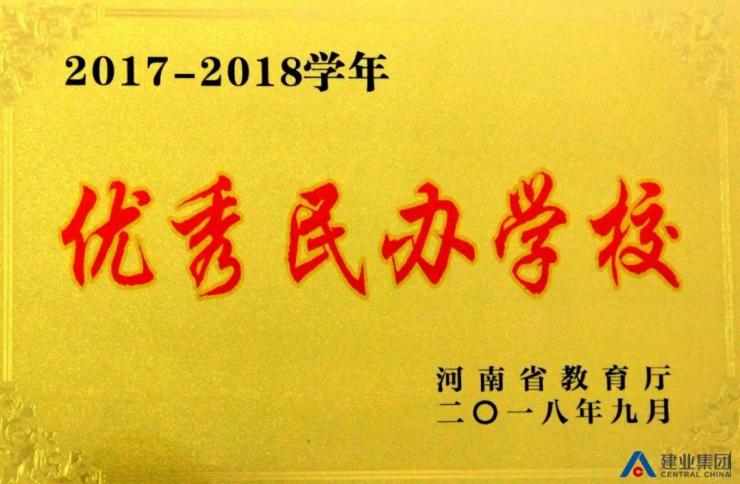 2017-2018学年
优秀民办学校
河南省教育厅
二〇一八年九月
建业集团
CENTRAL CHINA